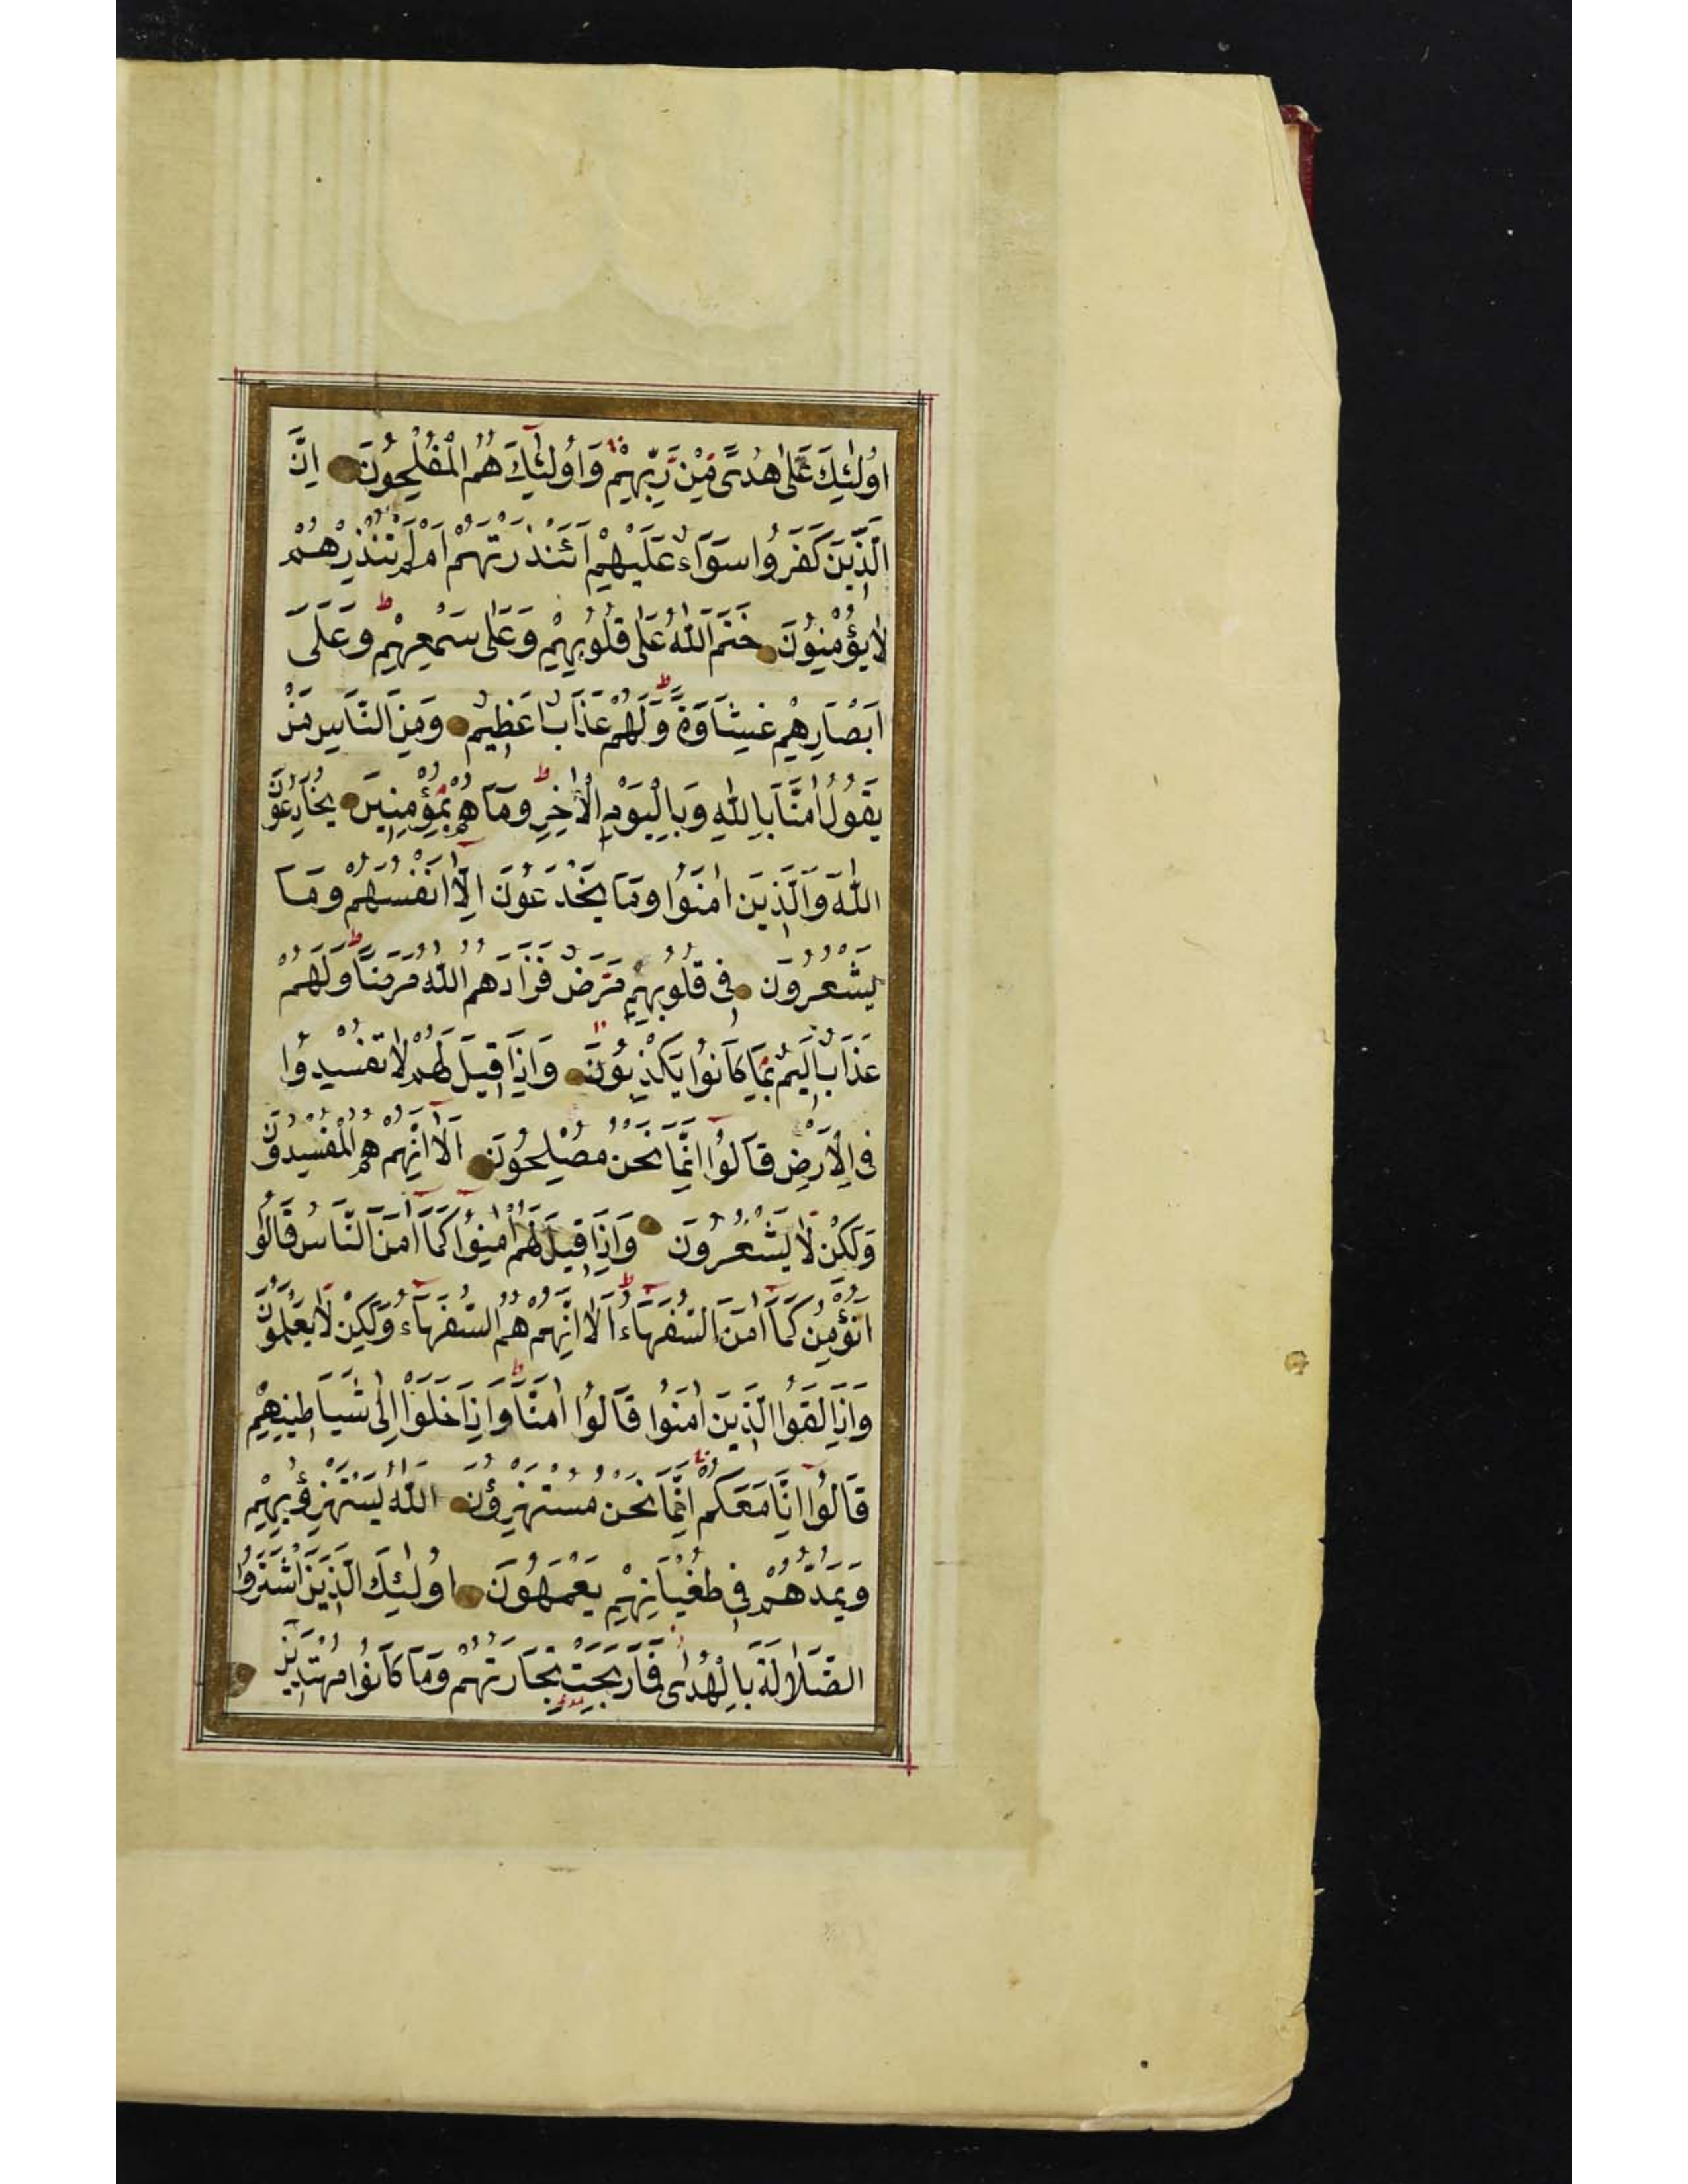 اُولٰئِكَ عَلٰى هُدًى مِنْ رَبِّهِمْ وَاُولٰئِكَ هُمُ الْمُفْلِحُونَ اِنَّ
الَّذِينَ كَفَرُوا سَوَآءٌ عَلَيْهِمْ ءَاَنْذَرْتَهُمْ اَمْ لَمْ تُنْذِرْهُمْ
لَا يُؤْمِنُونَ خَتَمَ اللّٰهُ عَلٰى قُلُوبِهِمْ وَعَلٰى سَمْعِهِمْ ط وَعَلٰى
اَبْصَارِهِمْ غِشَاوَةٌ ط وَلَهُمْ عَذَابٌ عَظِيمٌ وَمِنَ النَّاسِ مَنْ
يَقُولُ اٰمَنَّا بِاللّٰهِ وَبِالْيَوْمِ الْاٰخِرِ ط وَمَا هُمْ بِمُؤْمِنِينَ يُخَادِعُونَ
اللّٰهَ وَالَّذِينَ اٰمَنُوا وَمَا يَخْدَعُونَ اِلَّا اَنْفُسَهُمْ وَمَا
يَشْعُرُونَ فِى قُلُوبِهِمْ مَرَضٌ فَزَادَهُمُ اللّٰهُ مَرَضًا ط وَلَهُمْ
عَذَابٌ اَلِيمٌ بِمَا كَانُوا يَكْذِبُونَ وَاِذَا قِيلَ لَهُمْ لَا تُفْسِدُوا
فِى الْاَرْضِ قَالُوا اِنَّمَا نَحْنُ مُصْلِحُونَ اَلَا اِنَّهُمْ هُمُ الْمُفْسِدُونَ
وَلٰكِنْ لَا يَشْعُرُونَ وَاِذَا قِيلَ لَهُمْ اٰمِنُوا كَمَا اٰمَنَ النَّاسُ قَالُوا
اَنُؤْمِنُ كَمَا اٰمَنَ السُّفَهَآءُ ط اَلَا اِنَّهُمْ هُمُ السُّفَهَآءُ وَلٰكِنْ لَا يَعْلَمُونَ
وَاِذَا لَقُوا الَّذِينَ اٰمَنُوا قَالُوا اٰمَنَّا ط وَاِذَا خَلَوْا اِلٰى شَيَاطِينِهِمْ
قَالُوا اِنَّا مَعَكُمْ اِنَّمَا نَحْنُ مُسْتَهْزِؤُنَ اَللّٰهُ يَسْتَهْزِؤُ بِهِمْ
وَيَمُدُّهُمْ فِى طُغْيَانِهِمْ يَعْمَهُونَ اُولٰئِكَ الَّذِينَ اشْتَرَوُا
الضَّلَالَةَ بِالْهُدٰى فَمَا رَبِحَتْ تِجَارَتُهُمْ وَمَا كَانُوا مُهْتَدِينَ